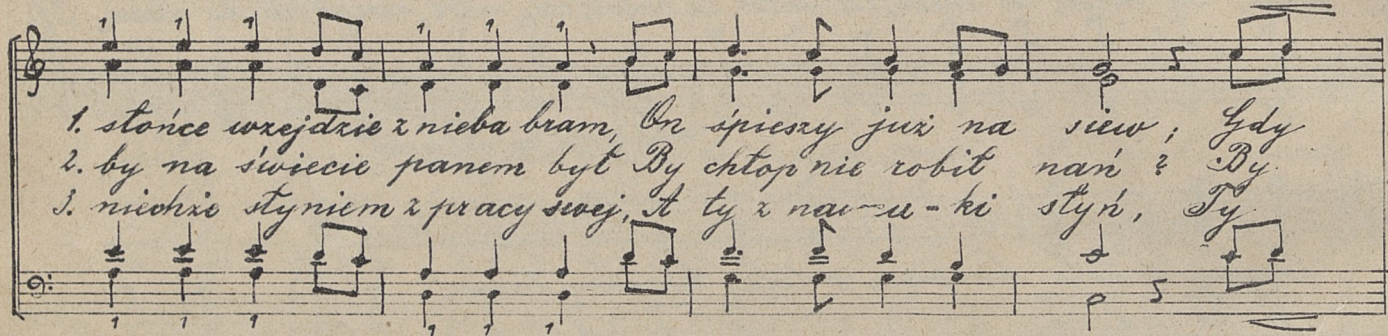 1. słońce wzejdzie z nieba bram, On śpieszy już na siew; Gdy
2. by na świecie panem był By chłop nie robił nań? By
3. niechże słyniem z pracy swej, A ty z nau-u-ki słyń, Ty